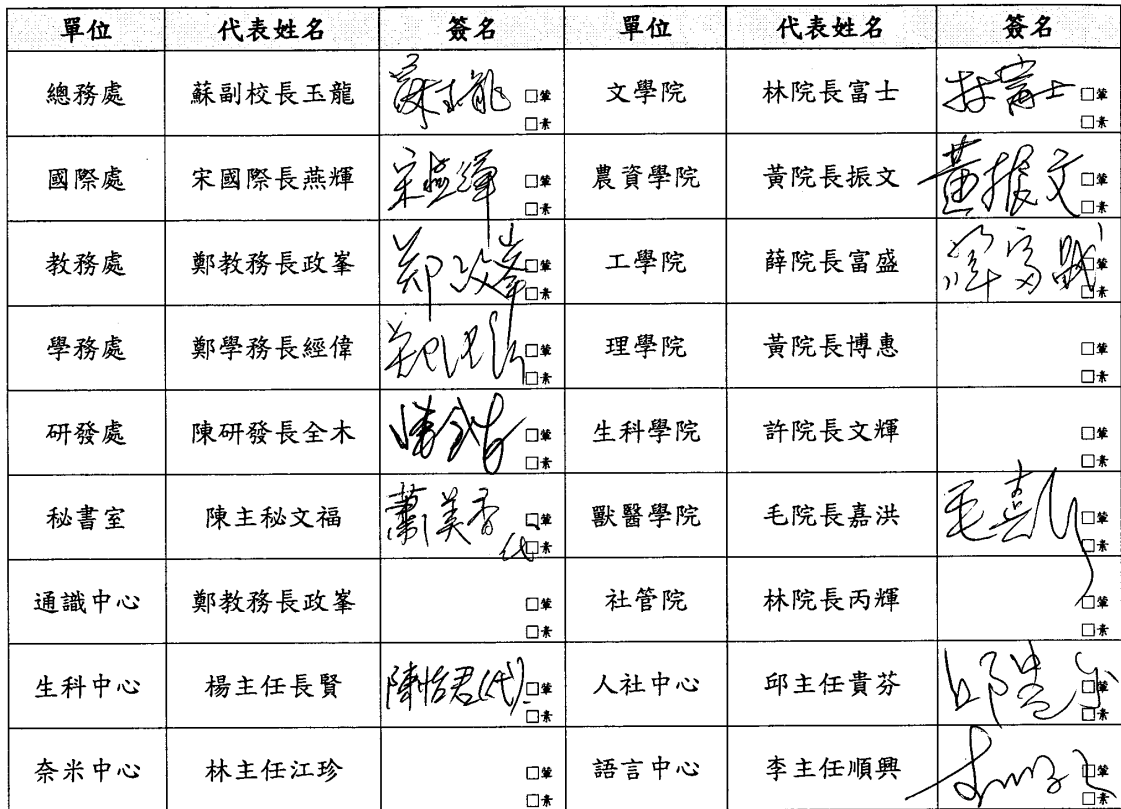 單位 代表姓名 簽名 單位 代表姓名 簽名
總務處 蘇副校長玉龍 蘇玉龍 □葷 □素 文學院 林院長富士 林富士 □葷 □素
國際處 宋國際長燕輝 宋燕輝 □葷 □素 農資學院 黃院長振文 黃振文 □葷 □素
教務處 鄭教務長政峯 鄭政峯 □葷 □素 工學院 薛院長富盛 薛富盛 □葷 □素
學務處 鄭學務長經偉 □葷 □素 理學院 黃院長博惠 □葷 □素
研發處 陳研發長全木 陳全木 □葷 □素 生科學院 許院長文輝 □葷 □素
秘書室 陳主秘文福 蕭美香代 □葷 □素 獸醫學院 毛院長嘉洪 毛嘉洪 □葷 □素
通識中心 鄭教務長政峯 □葷 □素 社管院 林院長丙輝 □葷 □素
生科中心 楊主任長賢 陳怡君(代) □葷 □素 人社中心 邱主任貴芬 邱貴芬 □葷 □素
奈米中心 林主任江珍 □葷 □素 語言中心 李主任順興 □葷 □素